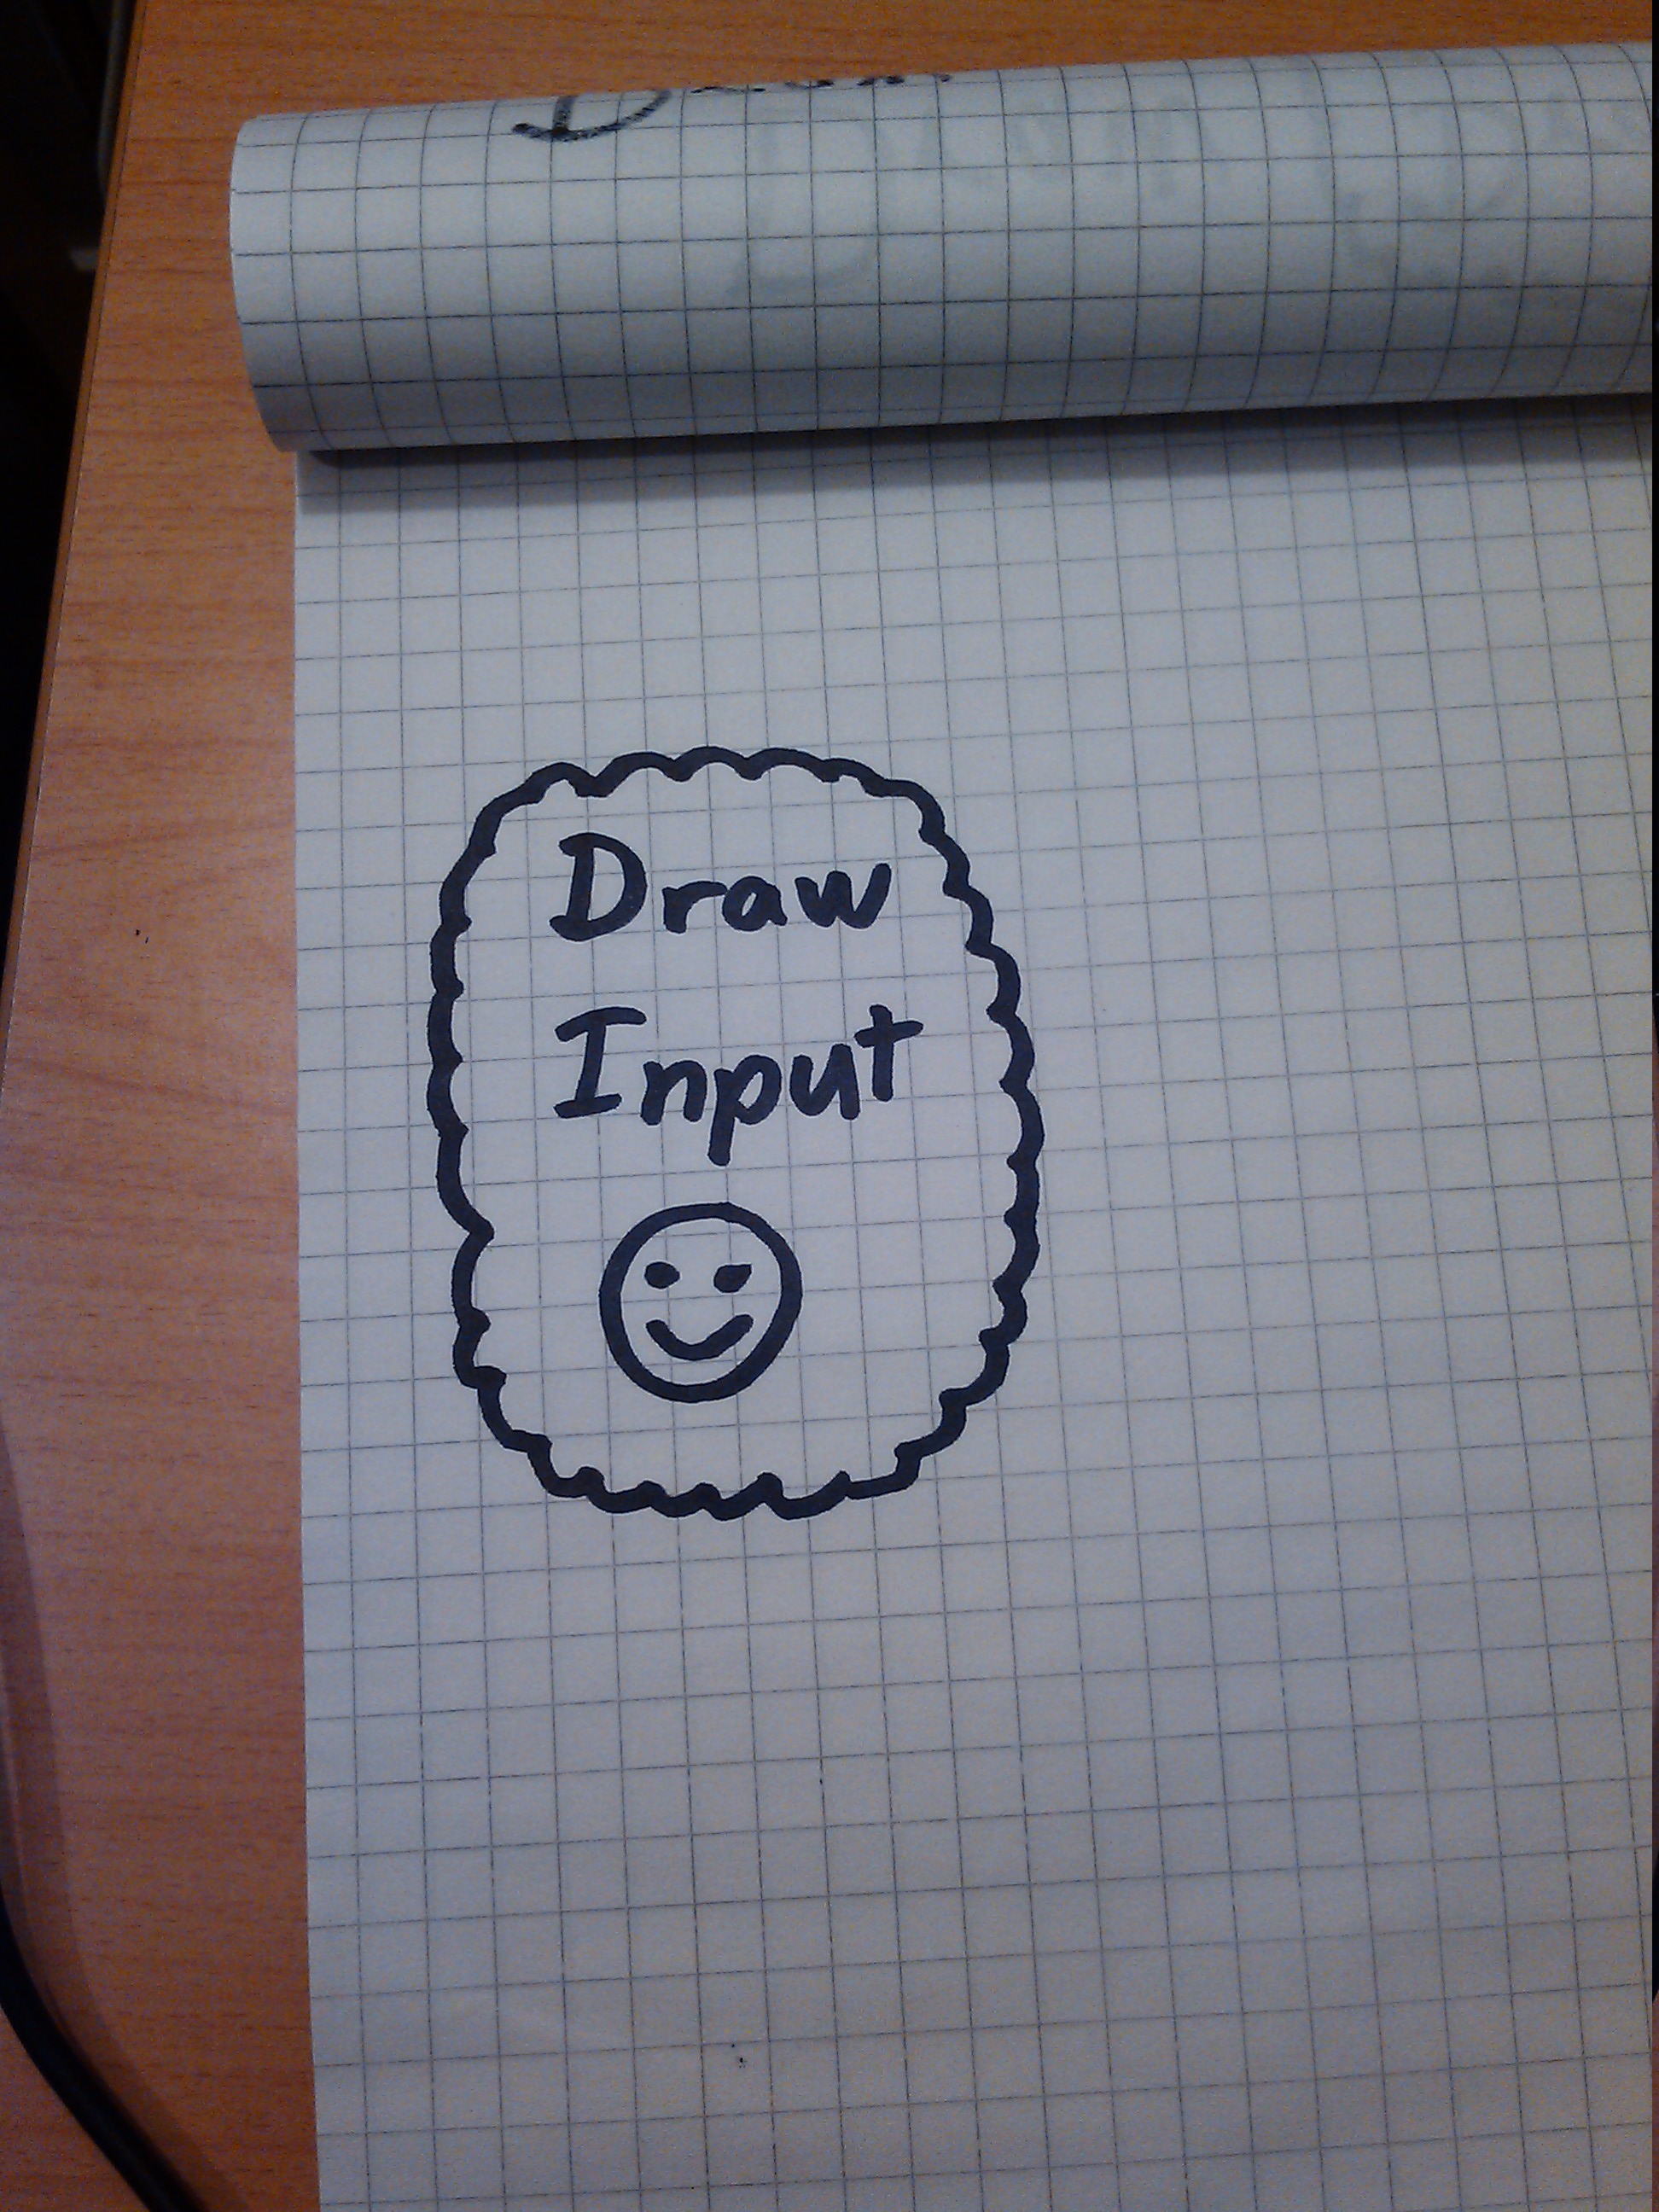 Draw
Input